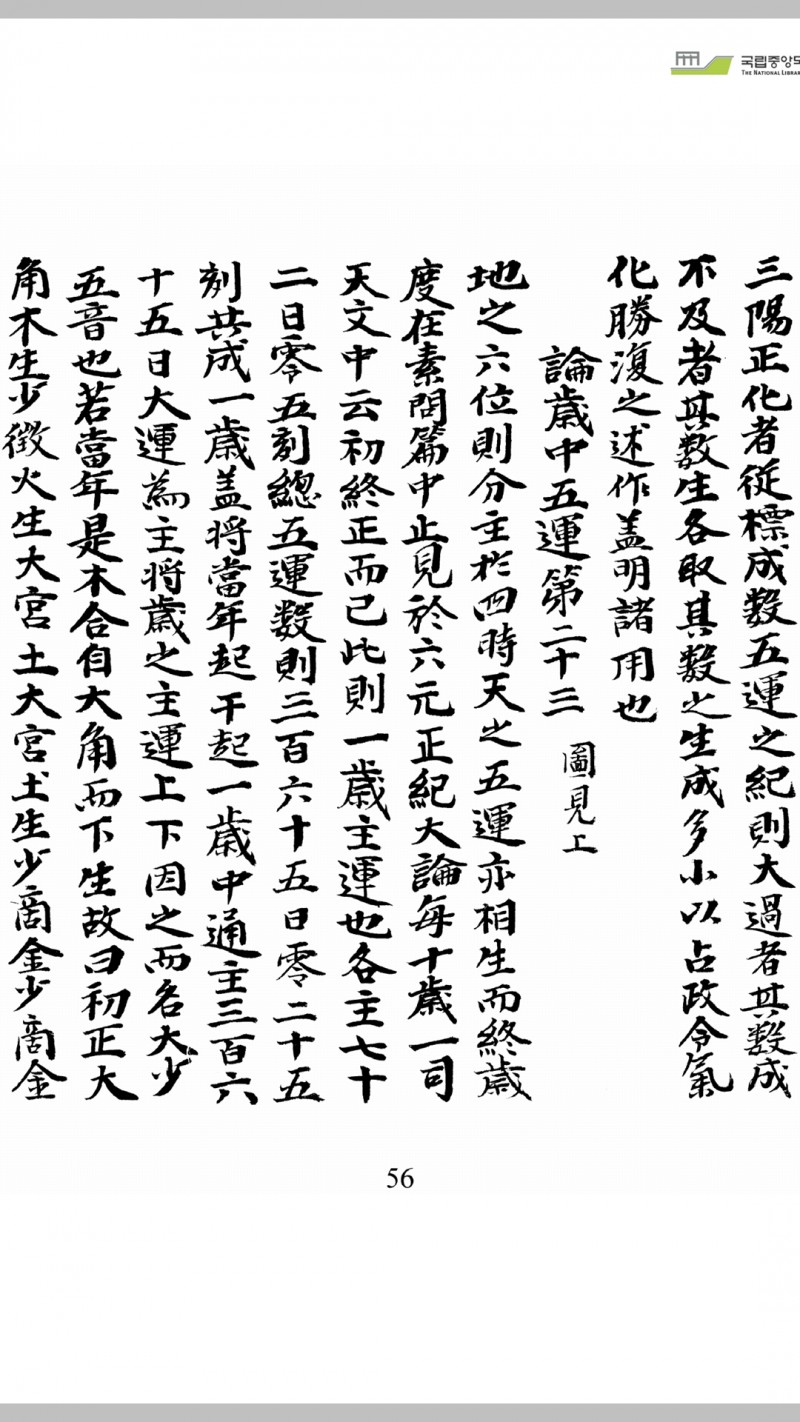 국립중앙도
THE NATIONAL LIBRA
三陽正化者從標成数五運之紀則大過者其数成
不及者其数生各取其数之生成多小以占政令氣
化勝復之述作盖明諸用也
論歲中五運第二十三 圖見上
地之六位則分主於四時天之五運亦相生而終歲
度在素問篇中止見於六元正紀大論每十歲一司
天文中云初終正而已此則一歲主運也各主七十
二日零五刻總五運数則三百六十五日零二十五
刻共成一歲盖將當年起干起一歲中通主三百六
十五日大運為主將歲之主運上下因之而名大少
五音也若當年是木合自大角而下生故曰初正大
角木生少徵火生大宮土大宮土生少商金少商金
56